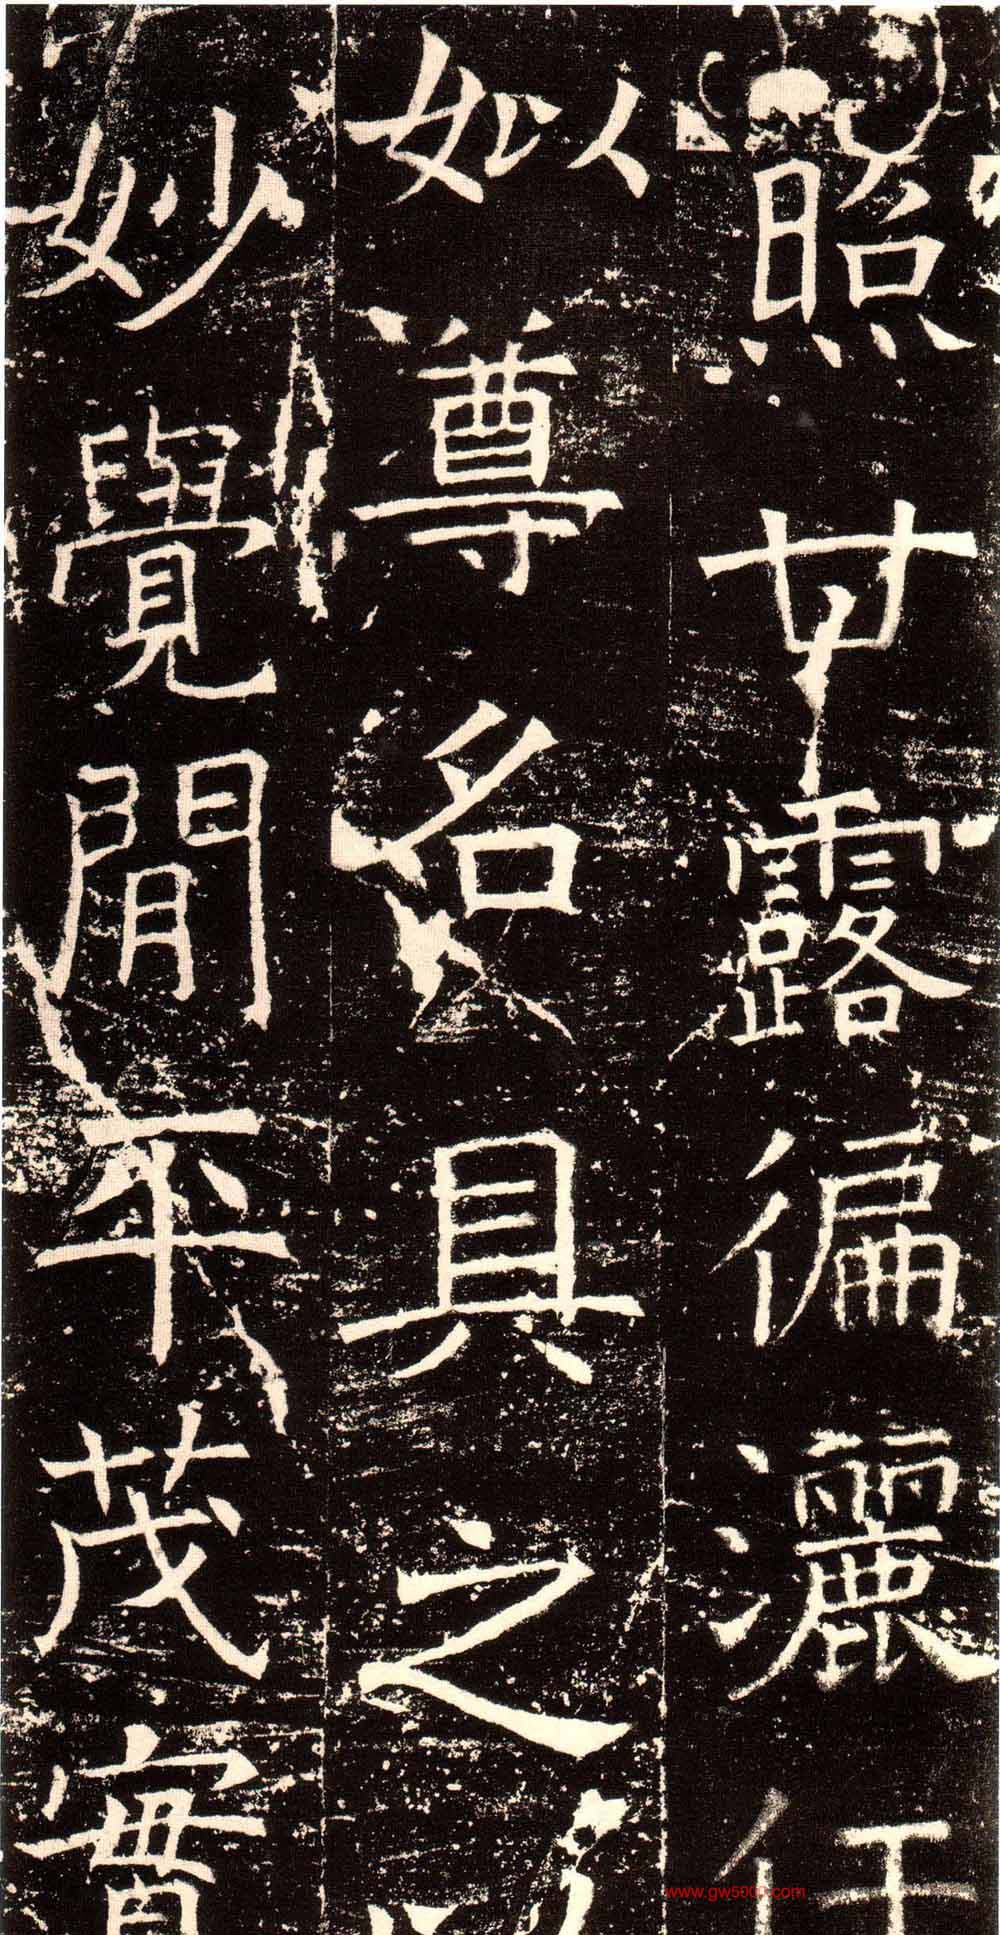 照甘露徧灑
姒尊名具之
妙覺閒平茂實
www.gw5000.com